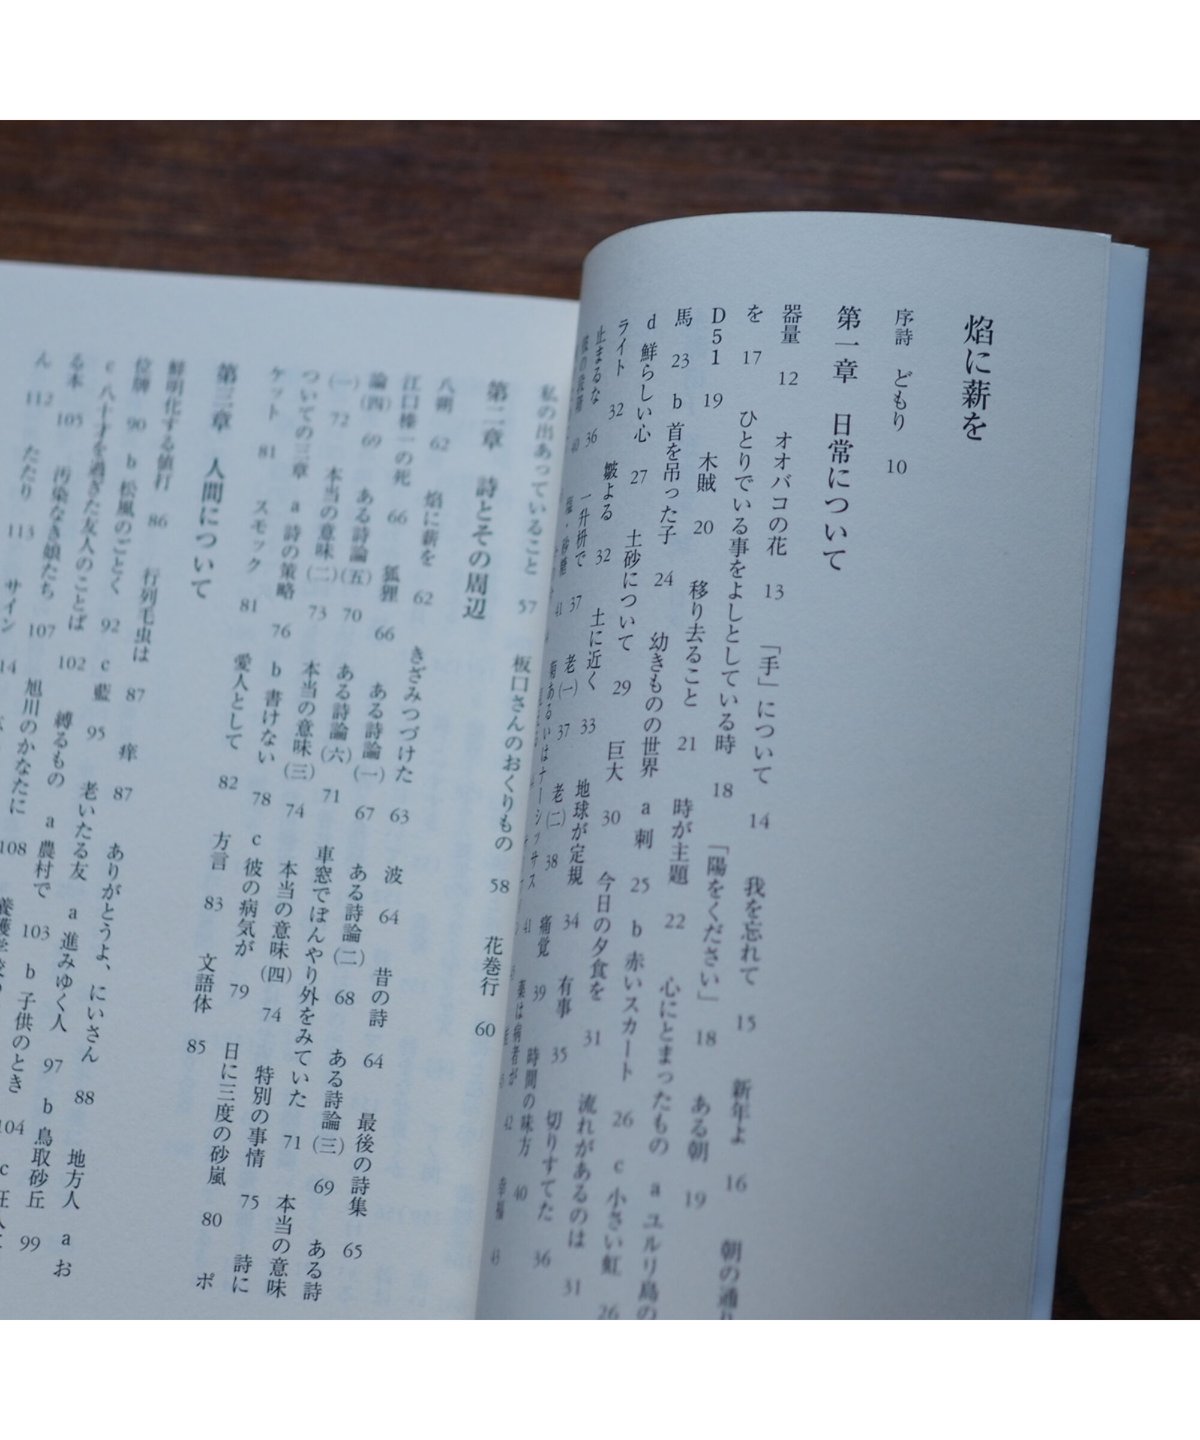 焰に薪を
序詩 どもり 10
第一章 日常について
器量 12 オオバコの花 13 「手」について 14 我を忘れて 15 新年よ 16 朝の通り
を 17 ひとりでいる事をよしとしている時 18 「陽をください」 18 ある朝 19
D51 19 木賊 20 移り去ること 21 時が主題 22 心にとまったもの a ユルリ島の
馬 23 b 首を吊った子 24 幼きものの世界 a 刺 25 b 赤いスカート 26 c 小さい虹 26
d 鮮らしい心 27 土砂について 29 巨大 30 今日の夕食を 31 流れがあるのは 31
ライト 32 皺よる 32 土に近く 33 地球が定規 34 有事 35 切りすてた 36
止まるな 36 一升枡で 37 老(一) 37 老(二) 38 痛覚 39 時間の味方 40
40 塩・砂糖 41 菊あるいはナーシッサス 41 薬は病者が 42 幸福 43
私の出あっていること 57 板口さんのおくりもの 58 花巻行 60
第二章 詩とその周辺
八朔 62 焰に薪を 62 きざみつづけた 63 波 64 昔の詩 64 最後の詩集 65
江口榛一の死 66 狐狸 66 ある詩論(一) 67 ある詩論(二) 68 ある詩論(三) 69 ある詩
論(四) 69 ある詩論(五) 70 ある詩論(六) 71 車窓でぼんやり外をみていた 71 本当の意味
(一) 72 本当の意味(二) 73 本当の意味(三) 74 本当の意味(四) 74 特別の事情 75 詩に
ついての三章 a 詩の策略 76 b 書けない 78 c 彼の病気が 79 日に三度の砂嵐 80 ポ
ケット 81 スモック 81 愛人として 82 方言 83 文語体 85
第三章 人間について
鮮明化する値打 86 行列毛虫は 87 痒 87 ありがとうよ、にいさん 88 地方人 a お
位牌 90 b 松風のごとく 92 c 藍 95 老いたる友 a 進みゆく人 97 b 鳥取砂丘 99
c 八十才を過ぎた友人のことば 102 縛るもの a 農村で 103 b 子供のとき 104 c
る本 105 汚染なき娘たち 107 旭川のかなたに 108
ん 112 たたり 113 サイン